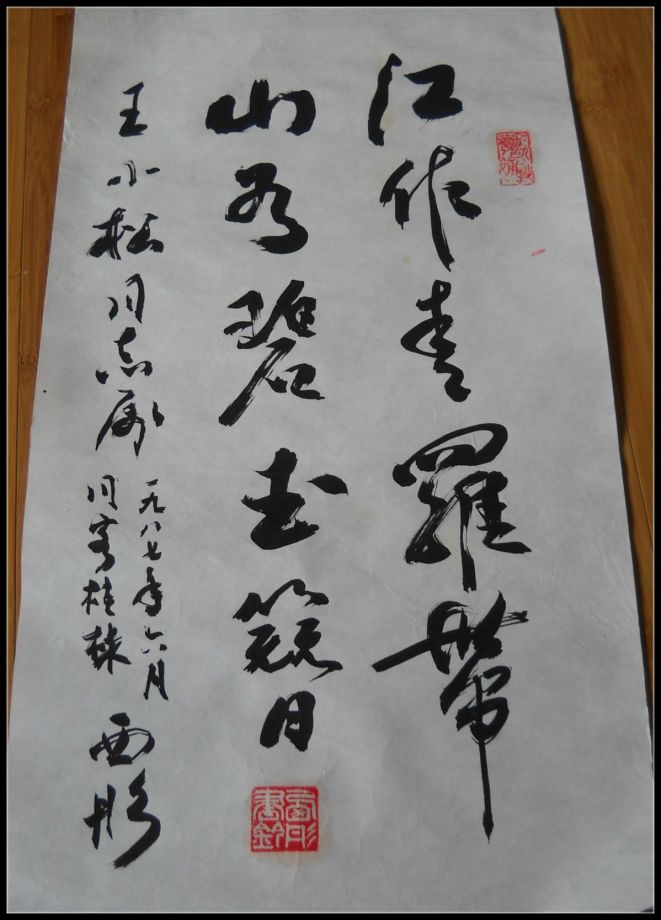 江作青羅帶
山為碧玉簪
王小松同志属
一九八七年六月
同客桂林
西彤
西彤書鈐